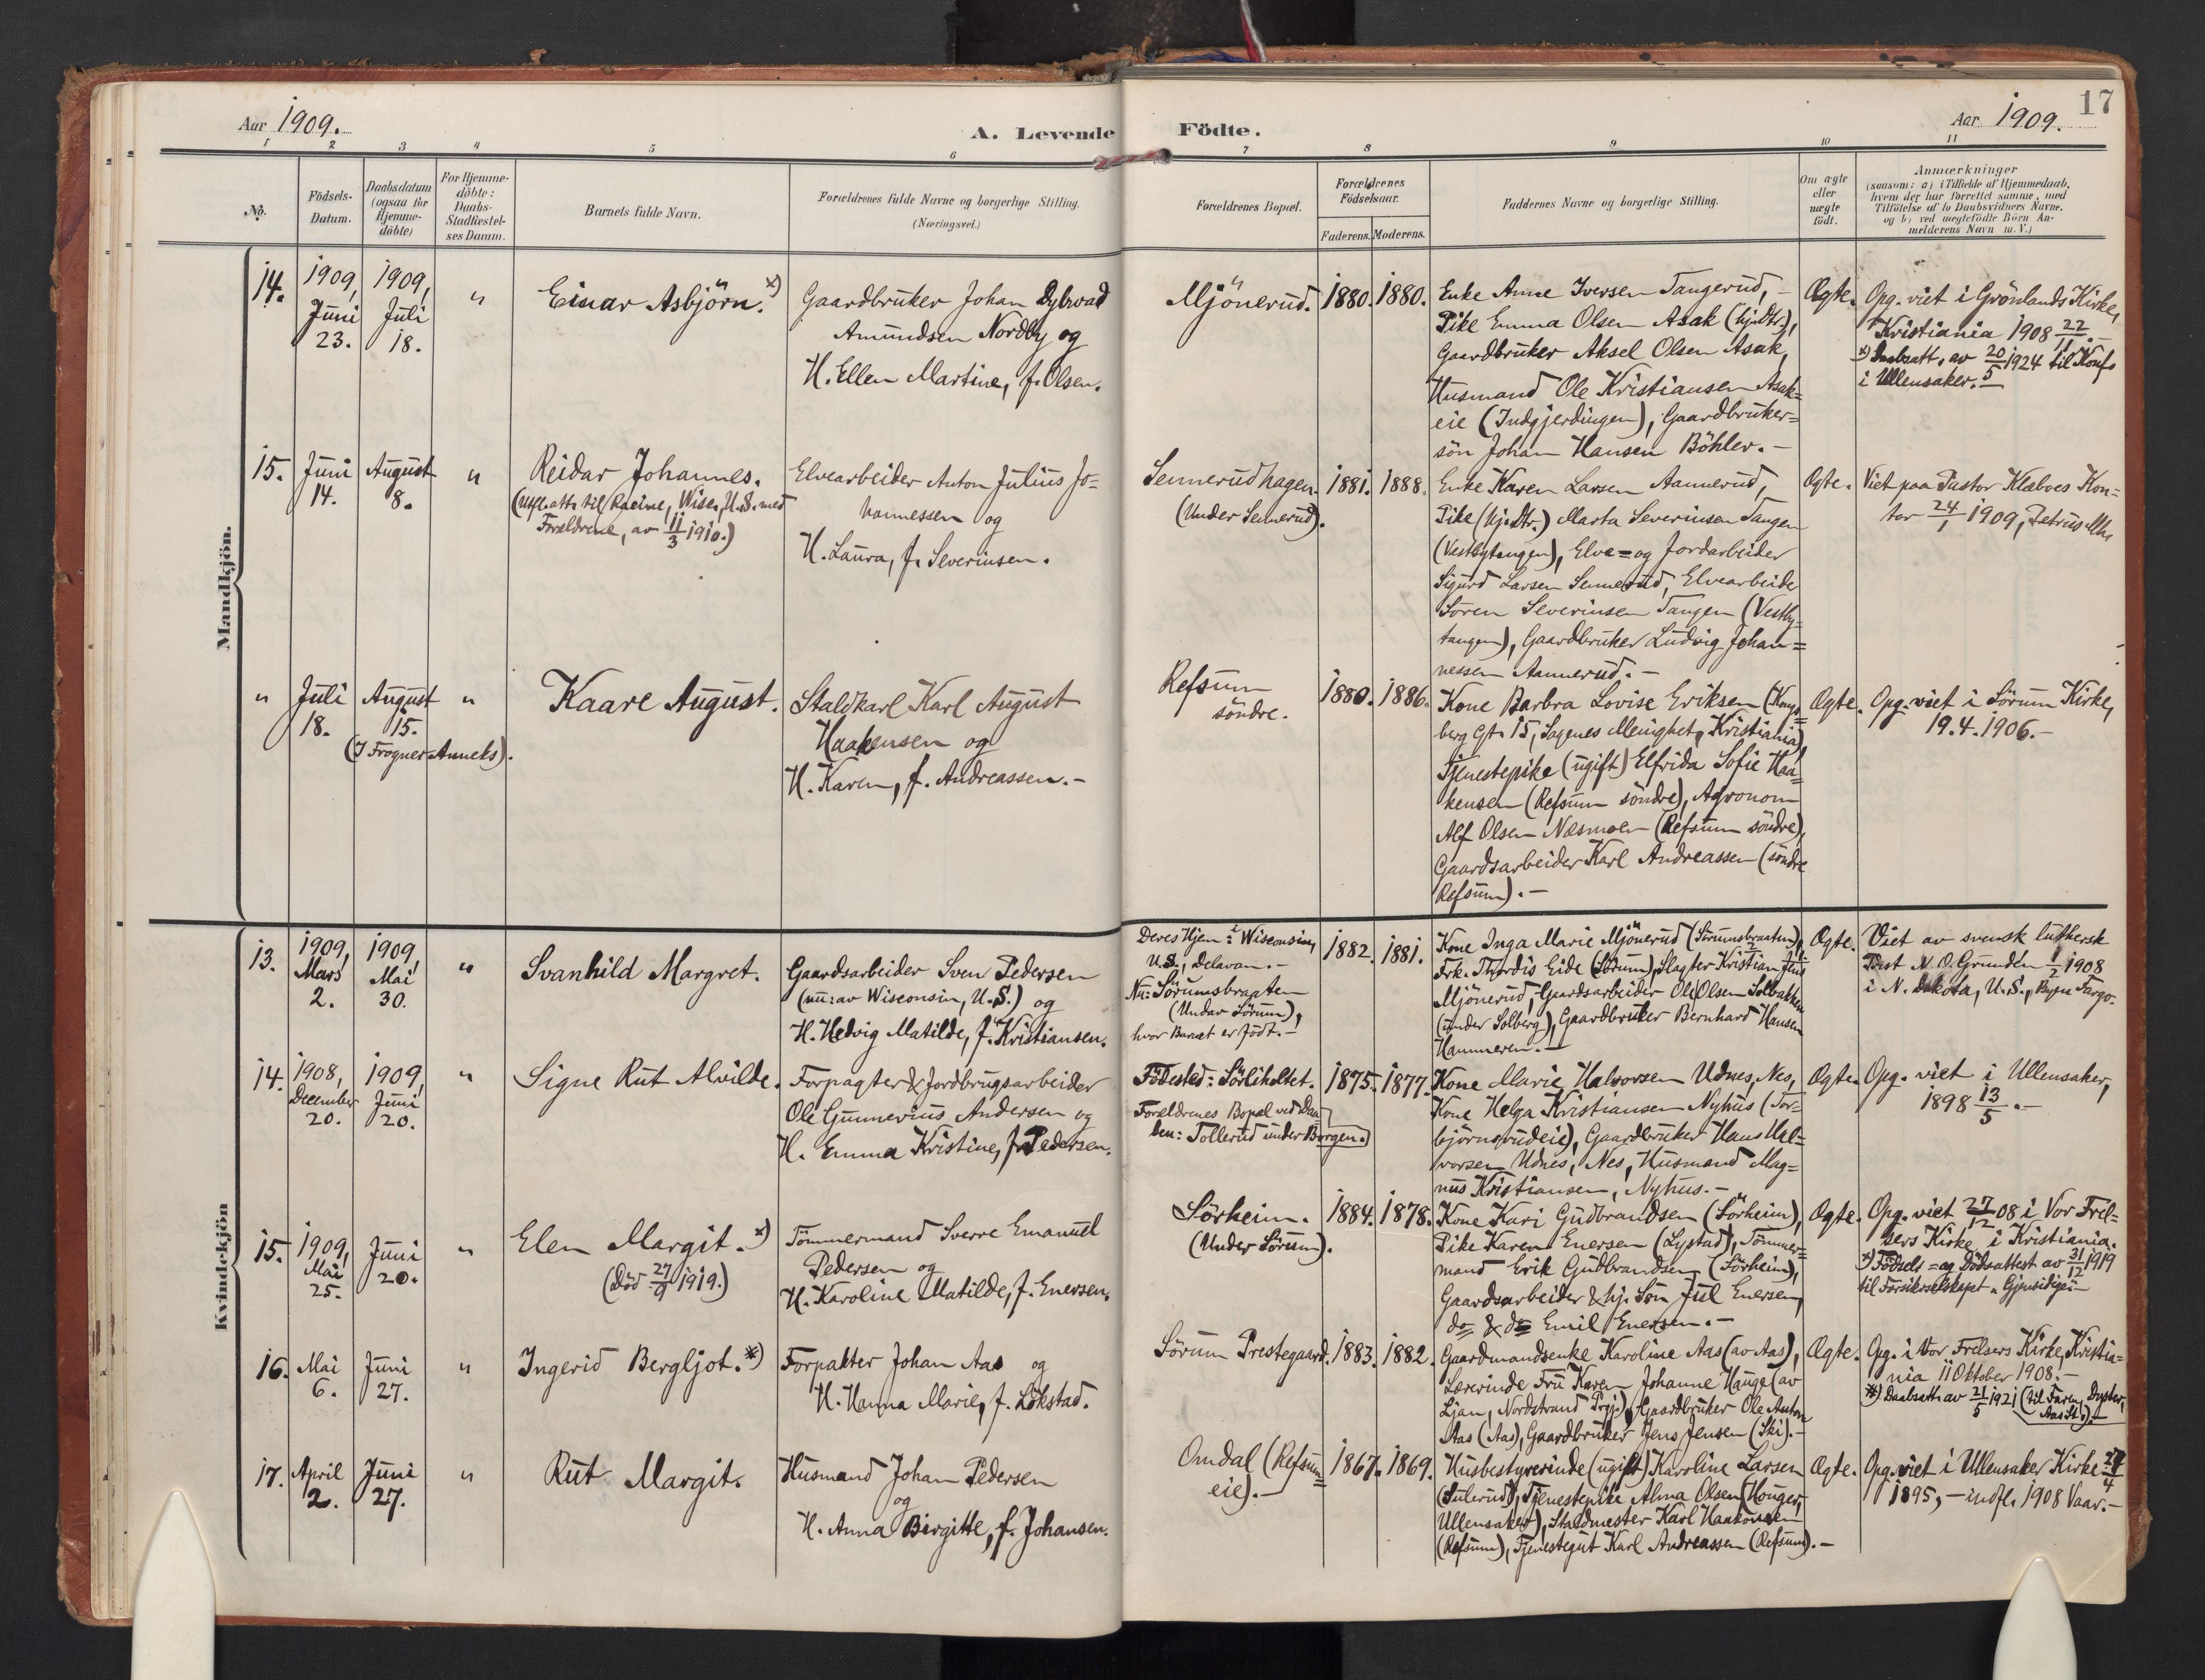 Aar 1909.
A. Levende Födte.
Aar 1909.
17
1 2 3 4 5 6 7 8 9 10 11
No.
Födsels-
Datum.
Daabsdatum
(ogsaa for
Hjemme-
döbte)
For Hjemme-
döbte:
Daabs-
Stadfæstel-
ses Datum.
Barnets fulde Navn.
Forældrenes fulde Navne og borgerlige Stilling.
(Næringsvei.)
Forældrenes Bopæl.
Forældrenes
Födselsaar.
Faderens. Moderens.
Faddernes Navne og borgerlige Stilling.
Om ægte
eller
uægte
født.
Anmærkninger
(saasom: a) i Tilfælde af Hjemmedaab,
hvem der har forrettet samme, med
Tilföielse af to Daabsvidners Navne.
og b) ved uægtefödte Börn An-
melderens Navn m. V.)
Mandkjön.
14.
1909,
Juni
23.
1909,
Juli
18.
"
Einar Asbjörn. *)
Gaardbruker Johan Dybwad
Amundsen Nordby og
H. Ellen Martine, f. Olsen.
Mjönerud.
1880. 1880.
Enke Anne Iversen Tangerud, -
Pike Emma Olsen Asak (hj.dtr.),
Gaardbruker Aksel Olsen Asak,
Husmand Ole Kristiansen Asak=
eie (Indgjerdingen), Gaardbruker=
sön Johan Hansen Böhler. -
Ægte.
Opg. viet i Grönlands Kirke,
Kristiania 1908 22/11. -
*) Daabsatt. av 20/5 1924 til Konf.
i Ullensaker. -
15.
Juni
14.
August
8.
"
Reidar Johannes.
(Utfl. att. til Racine, Wisc., U.S. med
Forældrene, av 11/3 1910.)
Elvearbeider Anton Julius Jo=
hannessen og
H. Laura, f. Severinsen.
Sennerudhagen.
(Under Sennerud).
1881. 1888.
Enke Karen Larsen Aannerud,
Pike (hj.dtr.) Marta Severinsen Tangen
(Vestbytangen), Elve= og Jordarbeider
Sigurd Larsen Sennerud, Elvearbeide
Sören Severinsen Tangen (Vestby-
tangen), Gaardbruker Ludvig Johan=
nessen Aannerud. -
Ægte.
Viet paa Pastor Klæboes Kon=
tor 24/1 1909, Petrus
"
Juli
18.
August
15.
(I Frogner Anneks).
"
Kaare August.
Staldkarl Karl August
Haakensen og
H. Karen, f. Andreassen. -
Refsum
söndre.
1880. 1886.
Kone Barbra Lovise Eriksen (Kongs=
berg Gt. 15, Sagenes Menighet, Kristiania),
Tjenestepike (ugift) Elfrida Sofie Haa=
kensen (Refsum söndre), Agronom
Alf Olsen Næsmoen (Refsum söndre),
Gaardsarbeider Karl Andreassen (söndre
Refsum). -
Ægte.
Opg. viet i Sörum Kirke,
19.4.1906. -
Kvindekjön
13.
1909,
Mars
2.
1909,
Mai
30.
"
Svanhild Margret.
Gaardsarbeider Sven Pedersen
(nu: av Wisconsin, U.S.) og
H. Hedvig Matilde, f. Kristiansen.
Deres Hjem: i Wisconsin,
U.S., Delavan. -
Nu: Sörumsbraaten
(Under Sörum),
hvor Barnet er födt. -
1882. 1881.
Kone Inga Marie Mjönerud (Sörumsbraaten),
Frk. Thordis Eide (Sörum), Slagter Kristian Juul
Mjönerud, Gaardsarbeider Ole Olsen Solbakken
(under Solberg), Gaardbruker Bernhard Hansen
Hammeren. -
Ægte.
Viet av svensk luthersk
Prest N. O. Grundén 1/2 1908
i N. Dakota, U.S., Byen Fargo.
14.
1908,
December
20.
1909,
Juni
20.
"
Signe Rut Alvilde.
Forpagter & Jordbrugsarbeider
Ole Gunnerius Andersen og
H. Emma Kristine, f. Pedersen.
Födested: Sörliholtet.
Forældrenes Bopæl ved Daa=
ben: Tollerud under Borgen.
1875. 1877.
Kone Marie Halvorsen Udnes, Nes,
Kone Helga Kristiansen Nyhus (Tor=
björnsrudeie), Gaardbruker Hans Hal=
vorsen Udnes, Nes, Husmand Mag=
nus Kristiansen, Nyhus. -
Ægte.
Opg. viet i Ullensaker,
1898 13/5. -
15.
1909,
Mai
25.
Juni
20.
"
Elen Margit. *)
(Död 27/9 1919.)
Tömmermand Sverre Emanuel
Pedersen og
H. Karoline Matilde, f. Enersen.
Sörheim.
(Under Sörum).
1884. 1878.
Kone Kari Gudbrandsen (Sörheim),
Pike Karen Enersen (Lystad), Tömmer=
mand Erik Gudbrandsen (Sörheim),
Gaardsarbeider & hj. Sön Juul Enersen,
do & do Emil Enersen. -
Ægte.
Opg. viet 27/12 08 i Vor Frel=
sers Kirke i Kristiania.
*) Födsels= og Dödsattest av 31/12 1919
til Forsikrselskapet "Gjensidige" -
16.
Mai
6.
Juni
27.
"
Ingerid Bergljot. *)
Forpakter Johan Aas og
H. Hanna Marie, f. Lökstad.
Sörum Prestegaard.
1883. 1882.
Gaardmandsenke Karoline Aas (av Aas),
Lærerinde Fru Karen Johanne Hauge (av
Ljan, Nordstrand Prgj.), Gaardbruker Ole Anton
Aas (Aas), Gaardbruker Jens Jensen (Ski). -
Ægte.
Opg. i Vor Frelsers Kirke, Kristia=
nia 11 Oktober 1908. -
*) Daabsatt. av 21/5 1921 (til Farm. Dyster,
Aas St.). -
17.
April
2.
Juni
27.
"
Rut Margit.
Husmand Johan Pedersen
og
H. Anna Birgitte, f. Johansen.
Omdal (Refsum=
eie). -
1867. 1869.
Husbestyrerinde (ugift) Karoline Larsen
(Sulerud), Tjenestepike Alma Olsen (Houger,
Ullensaker), Staldmester Karl Haakonsen
(Refsum), Tjenestegut Karl Andreassen (Refsum). -
Ægte.
Opg. viet i Ullensaker Kirke 27/4
1895, - indfl. 1908 Vaar. -